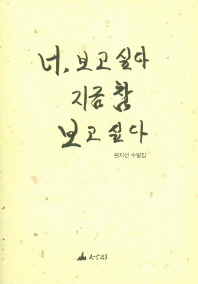 너, 보고 싶다
지금 참
보고 싶다
원지선 수필집